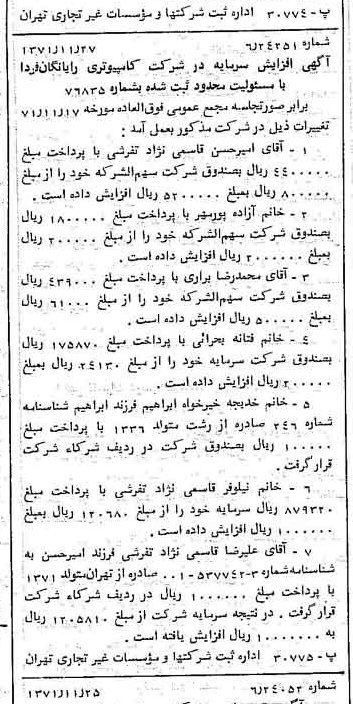 پ-۳۰۷۷۴ اداره ثبت شرکتها و مؤسسات غیر تجاری تهران
شماره ۶/۲۴۲۵۱ ۱۳۷۱/۱۱/۲۷
آگهی افزایش سرمایه در شرکت کامپیوتری رایانگان فردا
با مسئولیت محدود ثبت شده بشماره ۷۶۸۳۵
برابر صورتجلسه مجمع عمومی فوق‌العاده مورخه ۷۱/۱۱/۱۷
تغییرات ذیل در شرکت مذکور بعمل آمد :
۱ - آقای امیرحسن قاسمی نژاد تفرشی با پرداخت مبلغ
۴۴۰۰۰۰۰ ریال بصندوق شرکت سهم‌الشرکه خود را از مبلغ
۸۰۰۰۰۰ ریال بمبلغ ۵۲۰۰۰۰۰ ریال افزایش داده است .
۲ - خانم آزاده پورمهر با پرداخت مبلغ ۱۸۰۰۰۰۰ ریال
بصندوق شرکت سهم‌الشرکه خود را از مبلغ ۲۰۰۰۰۰ ریال
بمبلغ ۲۰۰۰۰۰۰ ریال افزایش داده است .
۳ - آقای محمدرضا براری با پرداخت مبلغ ۴۳۹۰۰۰ ریال
بصندوق شرکت سهم‌الشرکه خود را از مبلغ ۶۱۰۰۰ ریال
بمبلغ ۵۰۰۰۰۰ ریال افزایش داده است .
۴ - خانم فتانه بحرانی با پرداخت مبلغ ۱۷۵۸۷۰ ریال
بصندوق شرکت سرمایه خود را از مبلغ ۲۴۱۳۰ ریال بمبلغ
۲۰۰۰۰۰ ریال افزایش داده است .
۵ - خانم خدیجه خیرخواه ابراهیم فرزند ابراهیم شناسنامه
شماره ۲۴۶ صادره از رشت متولد ۱۳۳۶ با پرداخت مبلغ
۱۰۰۰۰۰ ریال بصندوق شرکت در ردیف شرکاء شرکت
قرار گرفت .
۶ - خانم نیلوفر قاسمی نژاد تفرشی با پرداخت مبلغ
۸۷۹۳۲۰ ریال سرمایه خود را از مبلغ ۱۲۰۶۸۰ ریال بمبلغ
۱۰۰۰۰۰۰ ریال افزایش داده است .
۷ - آقای علیرضا قاسمی نژاد تفرشی فرزند امیرحسن به
شناسنامه شماره ۳-۵۳۷۷۴۲-۰۰۱ صادره از تهران متولد ۱۳۷۱
با پرداخت مبلغ ۱۰۰۰۰۰۰ ریال در ردیف شرکاء شرکت
قرار گرفت . در نتیجه سرمایه شرکت از مبلغ ۱۲۰۵۸۱۰ ریال
به ۱۰۰۰۰۰۰۰ ریال افزایش یافته است .
پ-۳۰۷۷۵ اداره ثبت شرکتها و مؤسسات غیر تجاری تهران
شماره ۶/۲۴۰۵۲ ۱۳۷۱/۱۱/۲۵